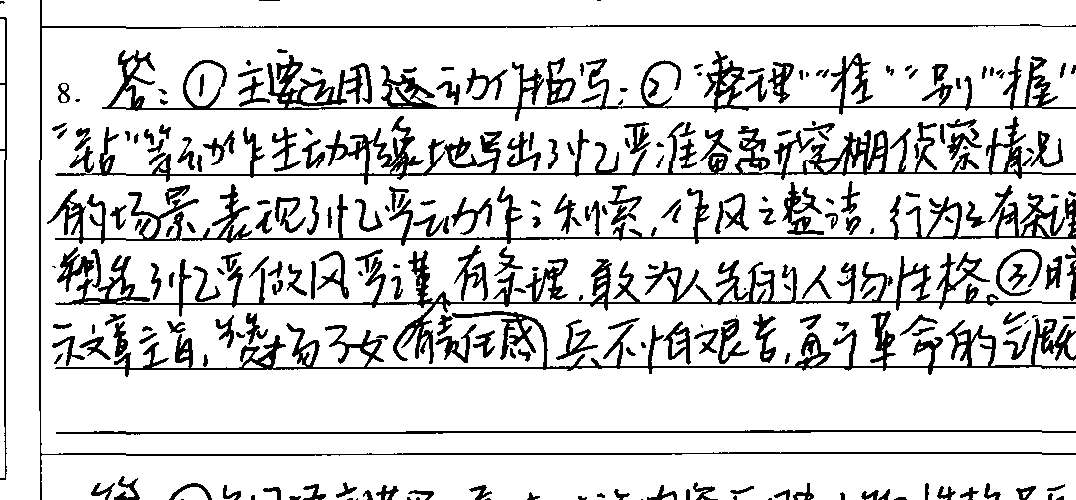 8. 答：①主要运用了动作描写；②“整理”“挂”“别”“握”
“钻”等动作生动形象地写出了忆严准备离开窝棚侦察情况
的场景，表现了忆严动作之利索，作风之整洁，行为之有条理
塑造了忆严做风严谨、有条理、敢为人先的人物性格。③暗
示文章主旨，赞扬了女（有责任感）兵不怕艰苦，勇于革命的气概